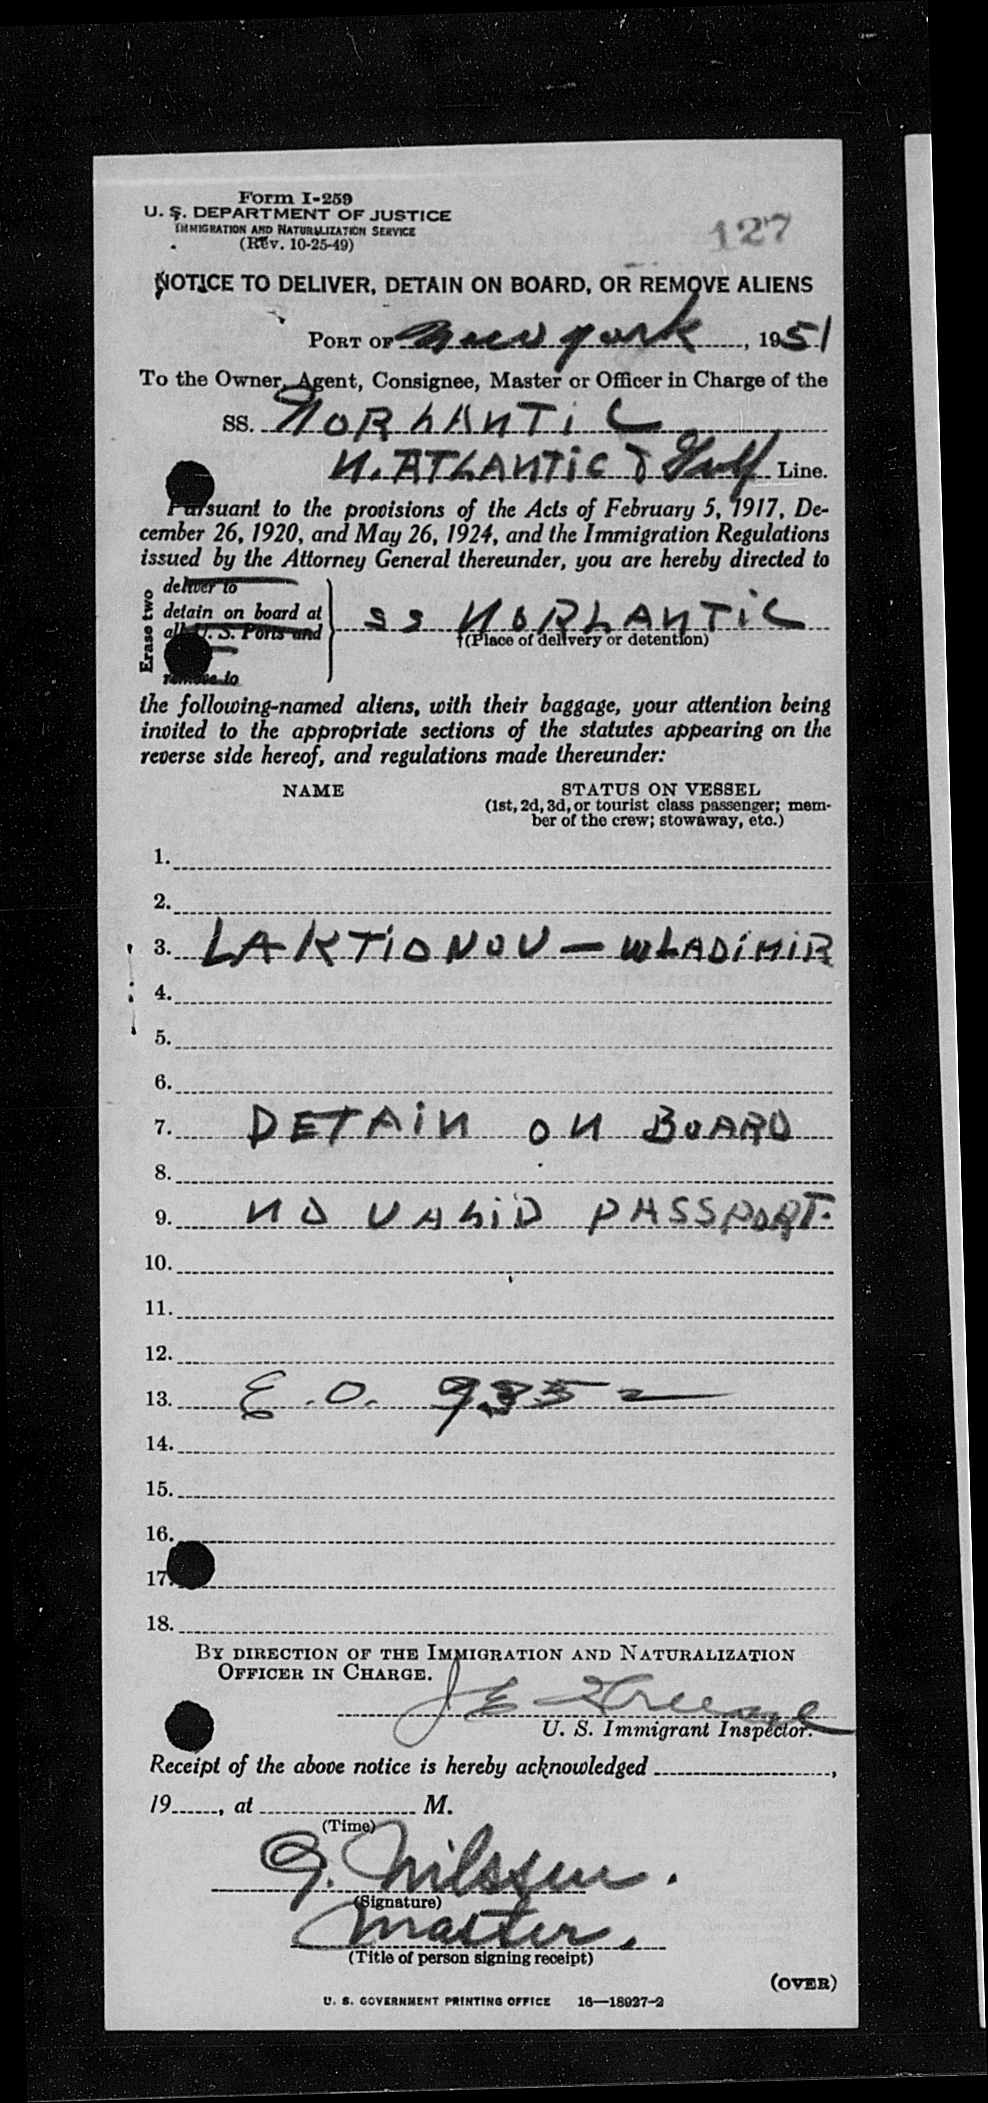 Form I-259
U. S. DEPARTMENT OF JUSTICE
IMMIGRATION AND NATURALIZATION SERVICE
(Rev. 10-25-49)
127
NOTICE TO DELIVER, DETAIN ON BOARD, OR REMOVE ALIENS
PORT OF New York, 1951
To the Owner, Agent, Consignee, Master or Officer in Charge of the
SS. NORLANTIC
N. ATLANTIC & Gulf Line.
Pursuant to the provisions of the Acts of February 5, 1917, De-
cember 26, 1920, and May 26, 1924, and the Immigration Regulations
issued by the Attorney General thereunder, you are hereby directed to
Erase two
deliver to
detain on board at
all U. S. Ports and
remove to
SS NORLANTIC
†(Place of delivery or detention)
the following-named aliens, with their baggage, your attention being
invited to the appropriate sections of the statutes appearing on the
reverse side hereof, and regulations made thereunder:
NAME STATUS ON VESSEL
(1st, 2d, 3d, or tourist class passenger; mem-
ber of the crew; stowaway, etc.)
1.
2.
3. LAKTIONOV — WLADIMIR
4.
5.
6.
7. DETAIN ON BOARD
8.
9. NO VALID PASSPORT.
10.
11.
12.
13. E.O. 9352
14.
15.
16.
17.
18.
BY DIRECTION OF THE IMMIGRATION AND NATURALIZATION
OFFICER IN CHARGE.
J E
U. S. Immigrant Inspector.
Receipt of the above notice is hereby acknowledged ,
19 , at M.
(Time)
G. Nilssen.
(Signature)
Master.
(Title of person signing receipt)
(OVER)
U. S. GOVERNMENT PRINTING OFFICE 16—18927-2